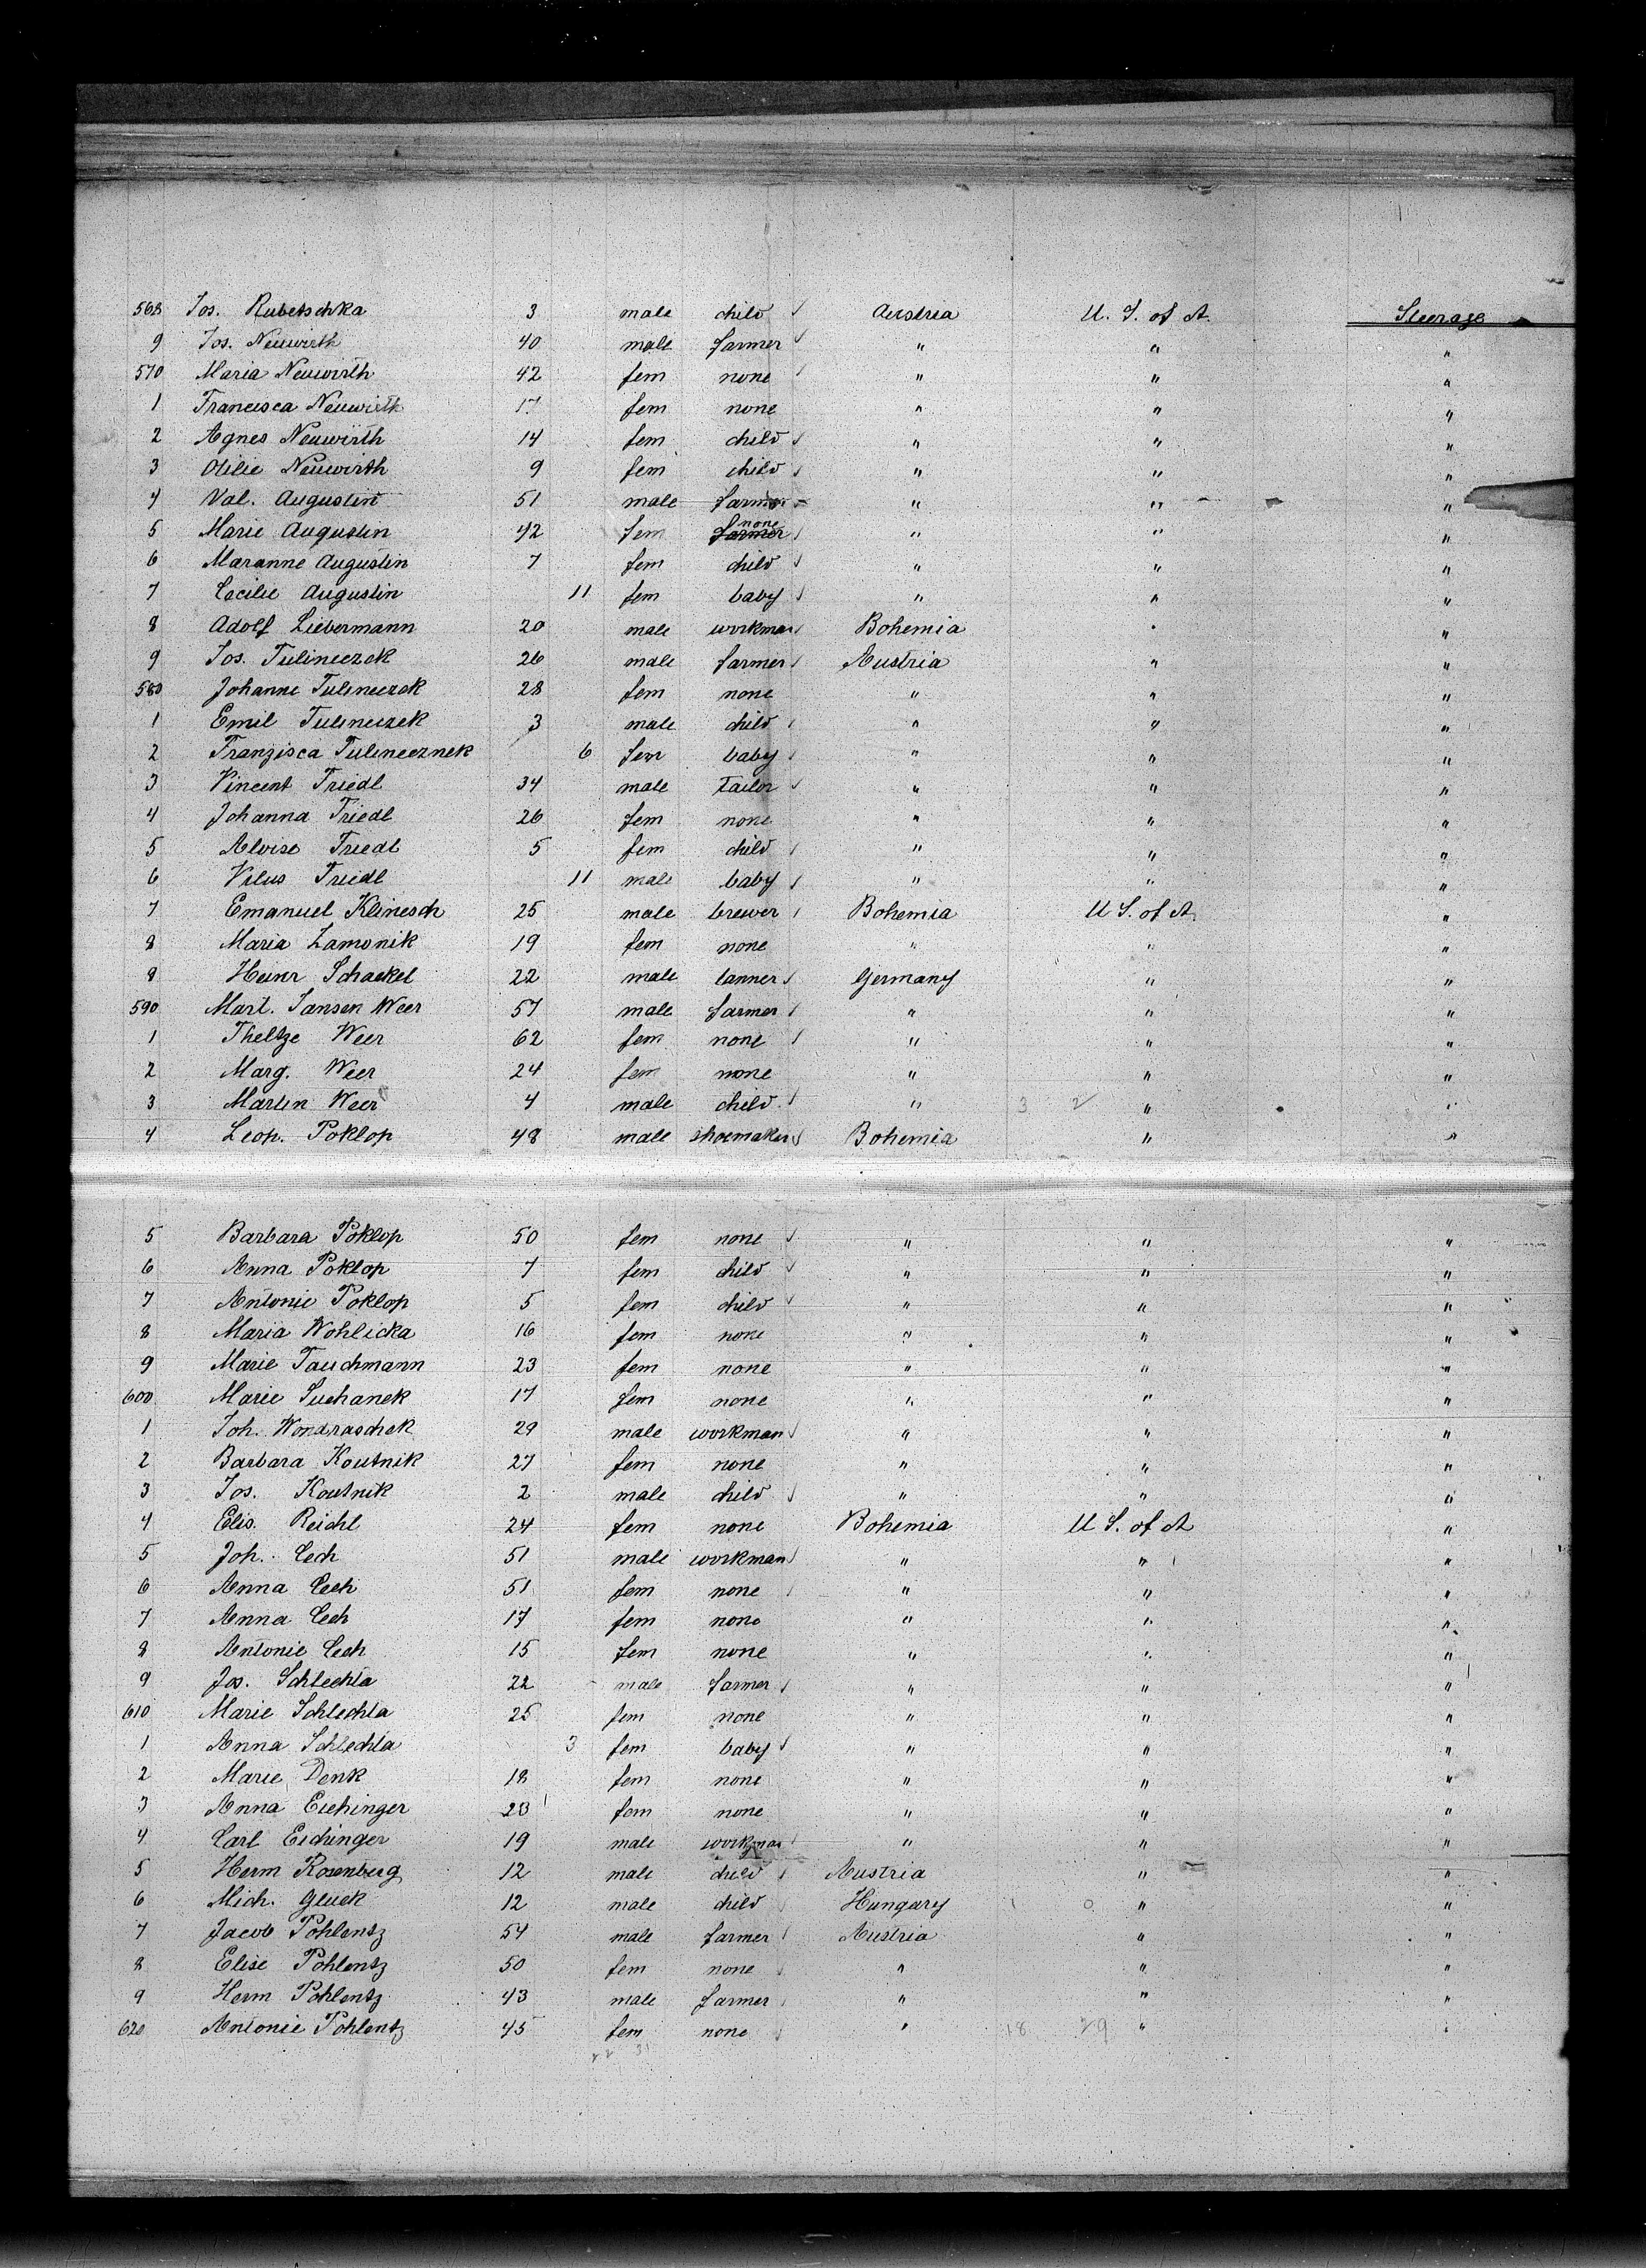 568 Jos. Rubetschka 3 male child √ Austria U. S. of A. Steerage
9 Jos. Neuwirth 40 male farmer √ " " "
570 Maria Neuwirth 42 fem none √ " " "
1 Francisca Neuwirth 17 fem none " " "
2 Agnes Neuwirth 14 fem child √ " " "
3 Otilie Neuwirth 9 fem child √ " " "
4 Val. Augustin 51 male farmer " " "
5 Marie Augustin 42 fem none √ " " "
6 Maranne Augustin 7 fem child √ " " "
7 Cecilie Augustin 11 fem baby √ " " "
8 Adolf Liebermann 20 male workman √ Bohemia " "
9 Jos. Tulineczek 26 male farmer √ Austria " "
580 Johanne Tulineczek 28 fem none " " "
1 Emil Tulineczek 3 male child √ " " "
2 Franzisca Tulinecznek 6 fem baby √ " " "
3 Vincent Friedl 34 male tailor √ " " "
4 Johanna Friedl 26 fem none " " "
5 Aloise Friedl 5 fem child √ " " "
6 Friedl 11 male baby √ " " "
7 Emanuel Klinesch 25 male brewer √ Bohemia U S. of A. "
8 Maria Zamonik 19 fem none " " "
8 Heinr Schaekel 22 male tanner √ Germany " "
590 Mart. Jansen Weer 57 male farmer √ " " "
1 Theltze Weer 62 fem none √ " " "
2 Marg. Weer 24 fem none " " "
3 Martin Weer 4 male child √ " 3 2 " "
4 Leop. Poklop 48 male shoemaker √ Bohemia " "
5 Barbara Poklop 50 fem none √ " " "
6 Anna Poklop 7 fem child √ " " "
7 Antonie Poklop 5 fem child √ " " "
8 Maria Wohlicka 16 fem none " " "
9 Marie Tauchmann 23 fem none " " "
600 Marie Suchanek 17 fem none " " "
1 Joh. Wondraschek 29 male workman √ " " "
2 Barbara Koutnik 27 fem none " " "
3 Jos. Koutnik 2 male child √ " " "
4 Elis. Reichl 24 fem none Bohemia U S. of A "
5 Joh. Cech 51 male workman √ " " "
6 Anna Cech 51 fem none √ " " "
7 Anna Cech 17 fem none " " "
8 Antonie Cech 15 fem none " " "
9 Jos. Schlechta 22 male farmer √ " " "
610 Marie Schlechta 25 fem none " " "
1 Anna Schlechta 3 fem baby √ " " "
2 Marie Denk 18 fem none " " "
3 Anna Eichinger 23 fem none " " "
4 Carl Eichinger 19 male workman √ " " "
5 Herm Rosenberg 12 male child √ Austria " "
6 Mich. Glück 12 male child √ Hungary 1 0 " "
7 Jacob Pohlentz 54 male farmer √ Austria " "
8 Elise Pohlentz 50 fem none √ " " "
9 Herm Pohlentz 43 male farmer √ " " "
620 Antonie Pohlentz 45 fem none √ " 18 29 " "
22 31